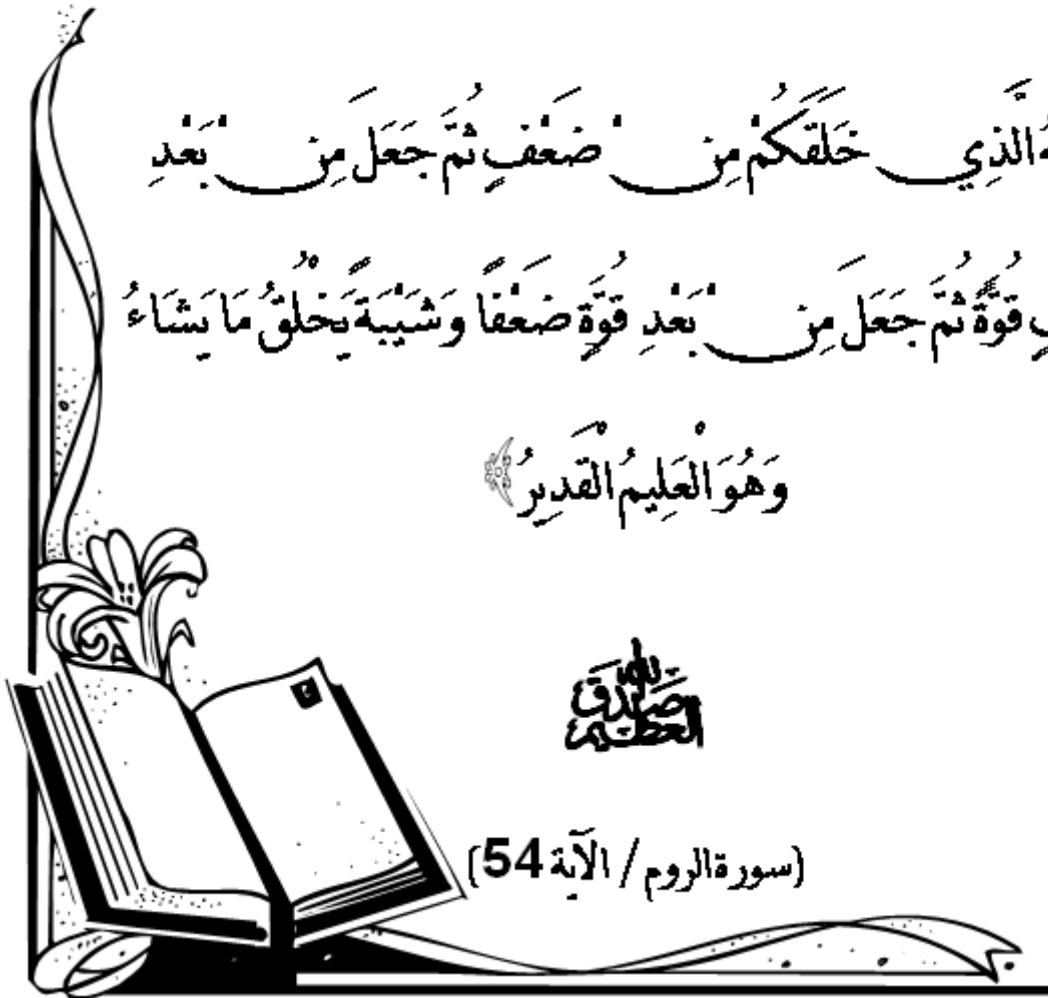 الَّذِي خَلَقَكُمْ مِنْ ضَعْفٍ ثُمَّ جَعَلَ مِنْ بَعْدِ
قُوَّةً ثُمَّ جَعَلَ مِنْ بَعْدِ قُوَّةٍ ضَعْفًا وَشَيْبَةً يَخْلُقُ مَا يَشَاءُ
وَهُوَ الْعَلِيمُ الْقَدِيرُ﴾
صدق الله العظيم
(سورة الروم / الآية 54)